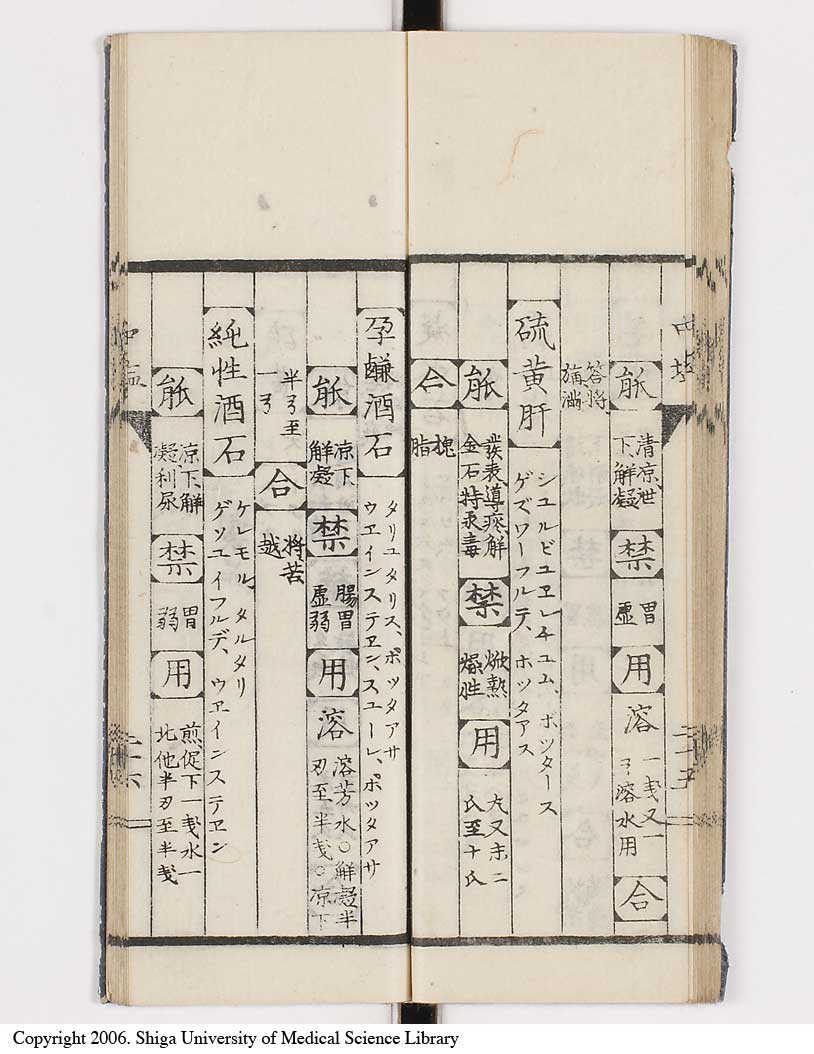 能 清凉泄
下解凝 禁 胃
虚 用 溶 一戔又一
ヲ溶水用 合
答将
旃満
硫黄肝 シユルビユヱレチユム、ポツタース
ゲズワーフルテ、ホツタアス
能 発表導痰解
金石特汞毒 禁 焮熱
燥性 用 丸又末二
氏至十氏
合 槐
脂
二十五
孕鹻酒石 タリユタリス、ポツタアサ
ウヱインステヱン、スユーレ、ポツタアサ
能 凉下
解凝 禁 腸胃
虚弱 用 溶 溶芳水○解凝半
刃至半戔○凉下
半ヲ至
一ヲ 合 将苦
越
純性酒石 ケレモル、タルタリ
ゲソユイフルデ、ウヱインステヱン
能 凉下解
凝利尿 禁 胃
弱 用 煎、促下一戔水一
北他半刃至半戔
二十六
Copyright 2006. Shiga University of Medical Science Library